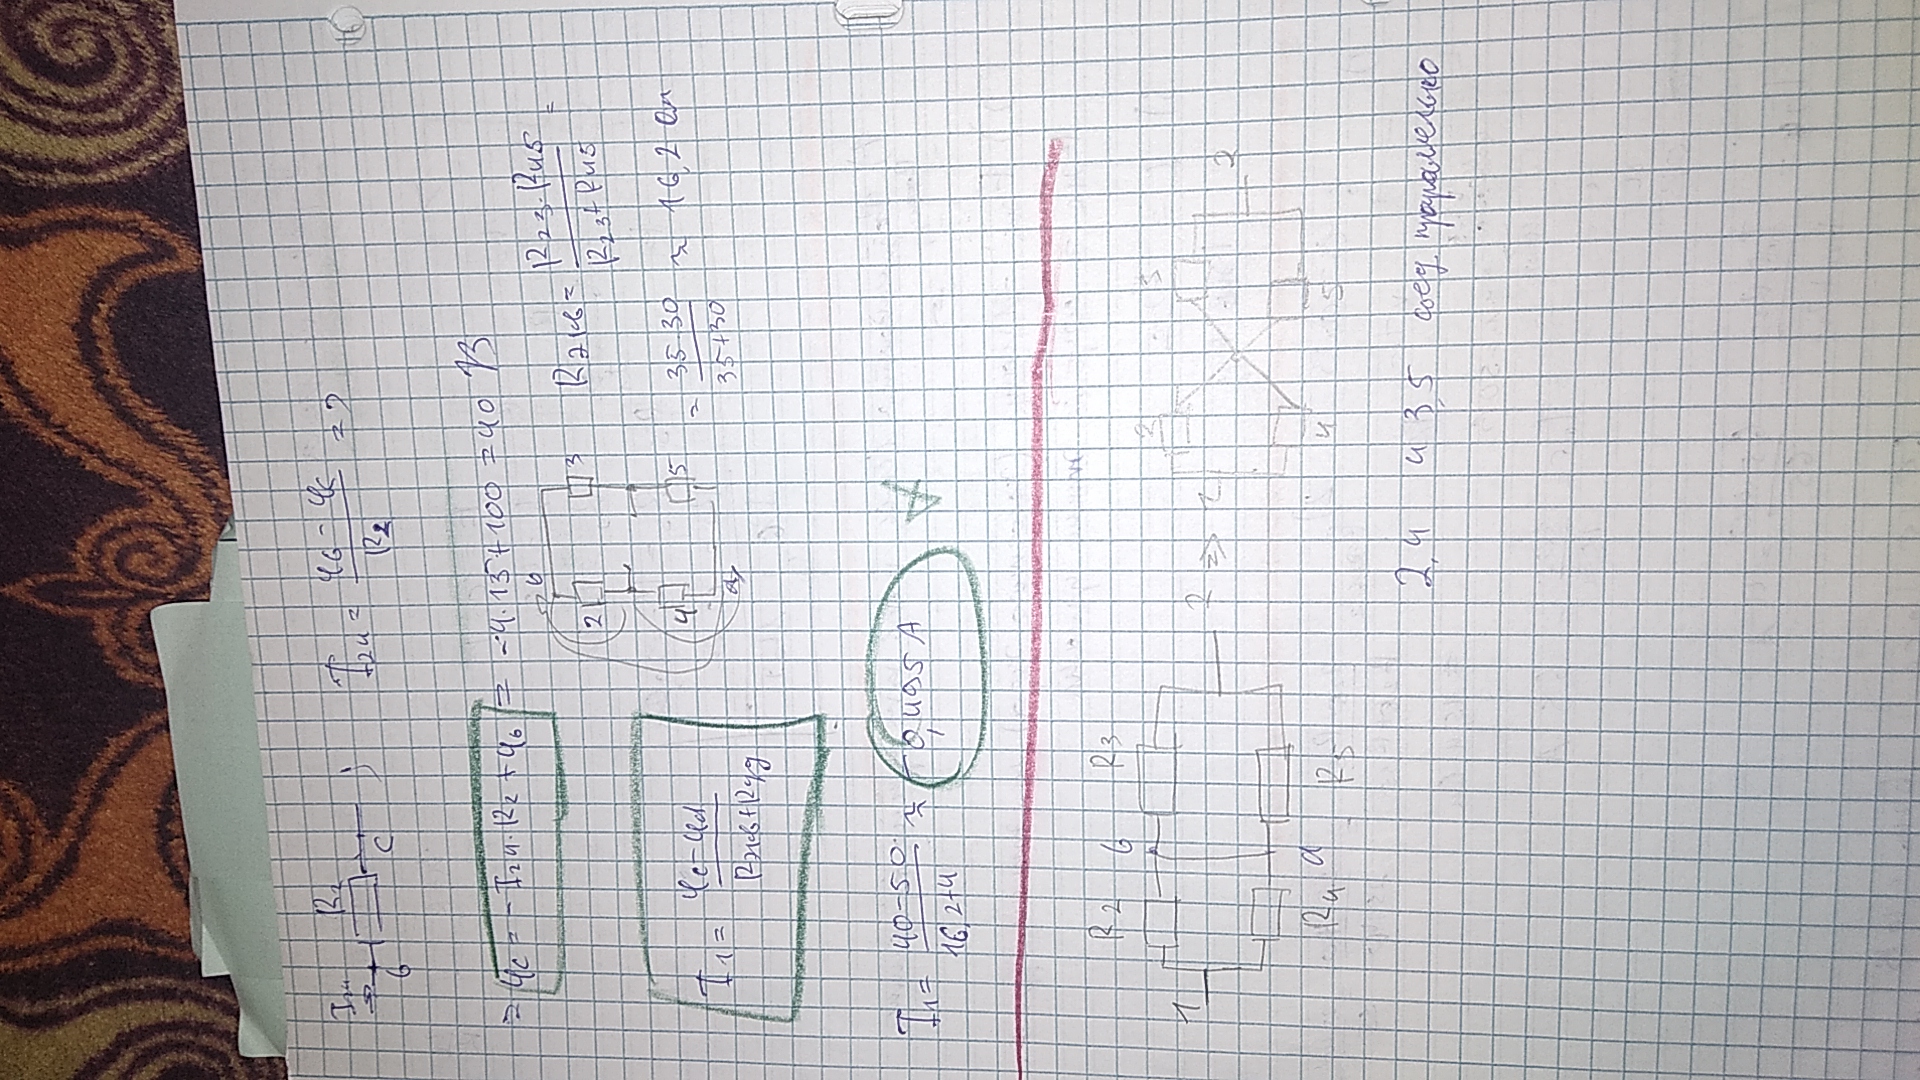 I₂₄ R₂
б c ; I₂₄ = (φб - φc)/R₂ = ?
⇒ φc = -I₂₄·R₂ + φб = -4·15+100 = 40 В
б
2 3
4 5
a
Rэкв = (R₂₃·R₄₅)/(R₂₃+R₄₅) =
= (35·30)/(35+30) ≈ 16,2 Ом
I₁ = (φc-φd)/(Rэкв+R₄g)
I₁ = (40-50)/(16,2+4) ≈ -0,495 А
R₂ б R₃
1 2 ⇒
R₄ a R₅
2 3
1 2
4 5
2,4 и 3,5 соед. паралельно